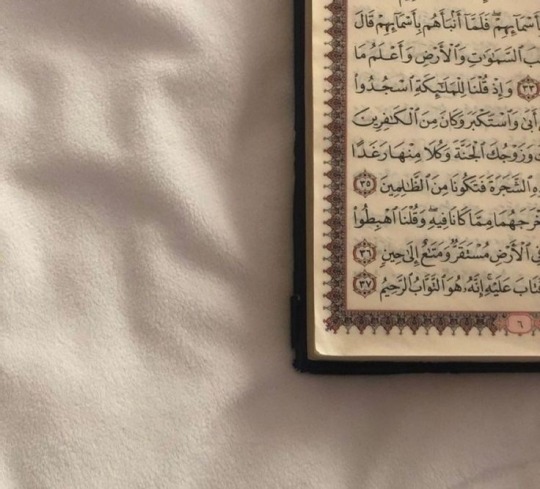 بِأَسْمَآئِهِمْ ۖ فَلَمَّآ أَنۢبَأَهُم بِأَسْمَآئِهِمْ قَالَ
ٱلسَّمَٰوَٰتِ وَٱلْأَرْضِ وَأَعْلَمُ مَا
٣٣ وَإِذْ قُلْنَا لِلْمَلَٰٓئِكَةِ ٱسْجُدُوا۟
أَبَىٰ وَٱسْتَكْبَرَ وَكَانَ مِنَ ٱلْكَٰفِرِينَ
وَزَوْجُكَ ٱلْجَنَّةَ وَكُلَا مِنْهَا رَغَدًا
ٱلشَّجَرَةَ فَتَكُونَا مِنَ ٱلظَّٰلِمِينَ ٣٥
مِمَّا كَانَا فِيهِ ۖ وَقُلْنَا ٱهْبِطُوا۟
ٱلْأَرْضِ مُسْتَقَرٌّ وَمَتَٰعٌ إِلَىٰ حِينٍ ٣٦
عَلَيْهِ ۚ إِنَّهُۥ هُوَ ٱلتَّوَّابُ ٱلرَّحِيمُ ٣٧
٦